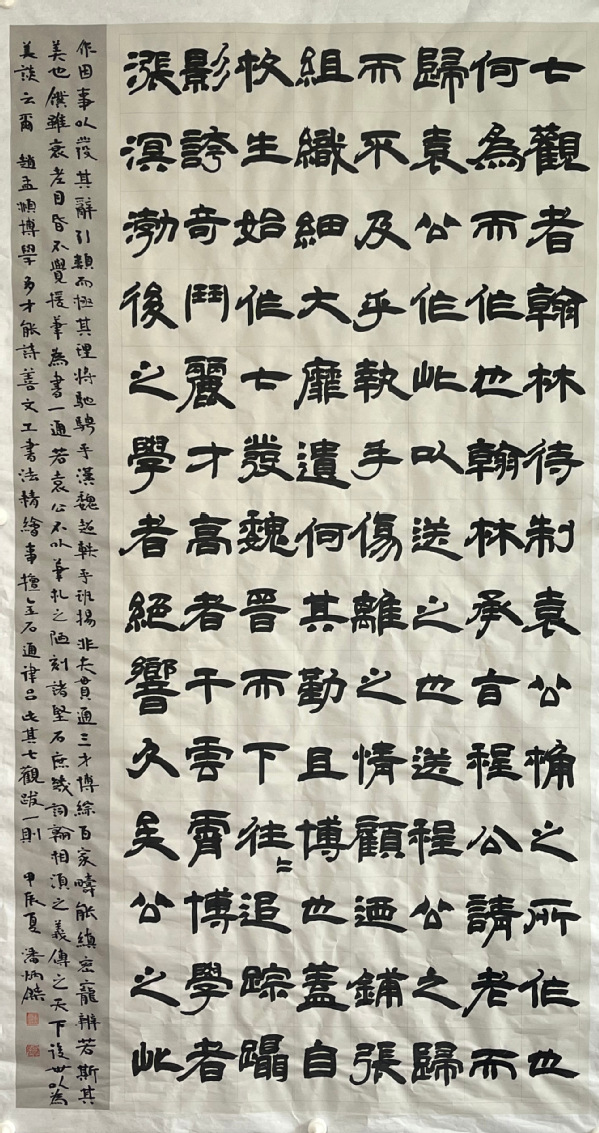 七觀者翰林待制袁公桷之所作也
何為而作也翰林承旨程公請老而
歸袁公作此以送之也送程公之歸
而不及乎執手傷離之情顧迺鋪張
組織細大靡遺何其勤且博也蓋自
枚生始作七發魏晉而下往〻追踪躡
影誇奇鬥麗才高者干雲霄博學者
漲溟渤後之學者絕響久矣公之此
作因事以發其辭引類而極其理將馳騁乎漢魏超軼乎班揚非夫貫通三才博綜百家疇能縝密寵辨若斯其
美也僕雖衰老目昏不覺援筆為書一通若袁公不以筆札之陋刻諸堅石庶幾詞翰相須之義傳之天下後世以為
美談云爾 趙孟頫博學多才能詩善文工書法精繪事擅金石通律呂此其七觀跋一則 甲辰夏 潘炳